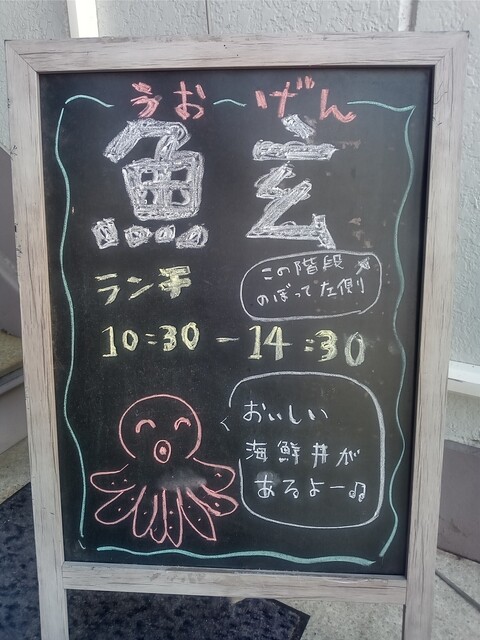 うお げん
魚玄
ランチ
この階段
のぼって左側!
10:30-14:30
おいしい
海鮮丼が
あるよー♫